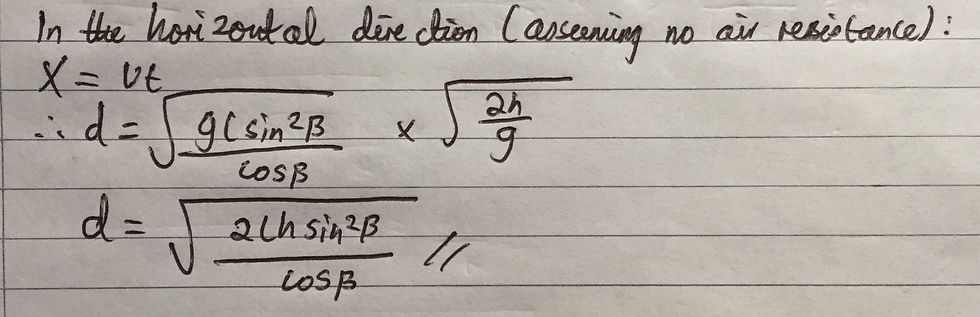 In the horizontal direction (assuming no air resistance):
x = vt
∴ d = √(gl sin²β / cosβ) × √(2h / g)
d = √(2lh sin²β / cosβ) //